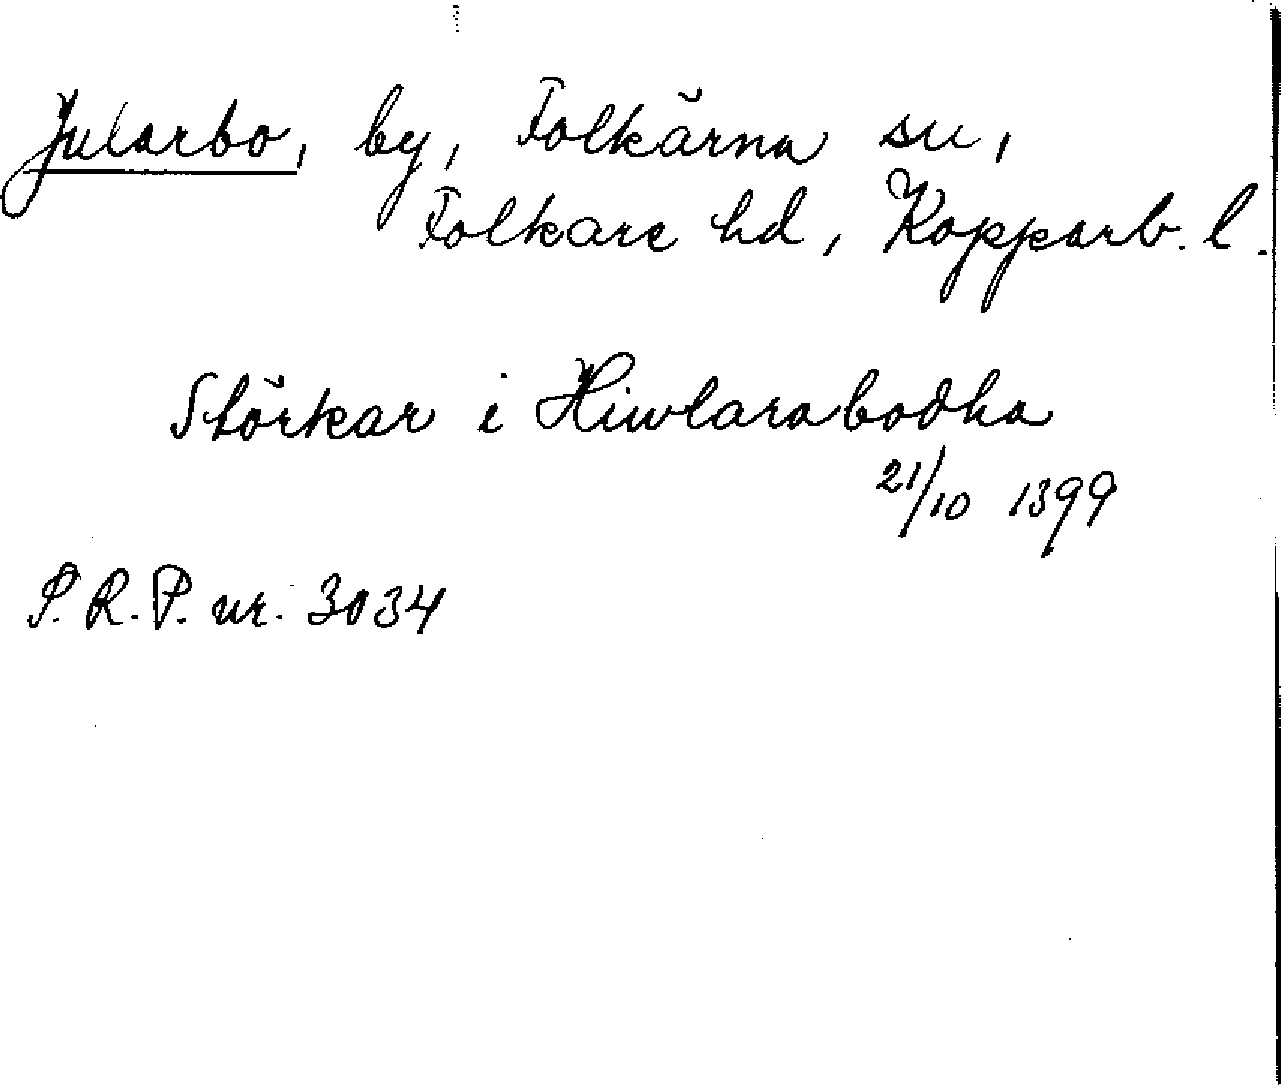 Jularbo, by, Folkärna sn,
Folkare hd, Kopparb. l.
Störkar i Hiwlarabodha
21/10 1399
S.R.P. nr. 3034